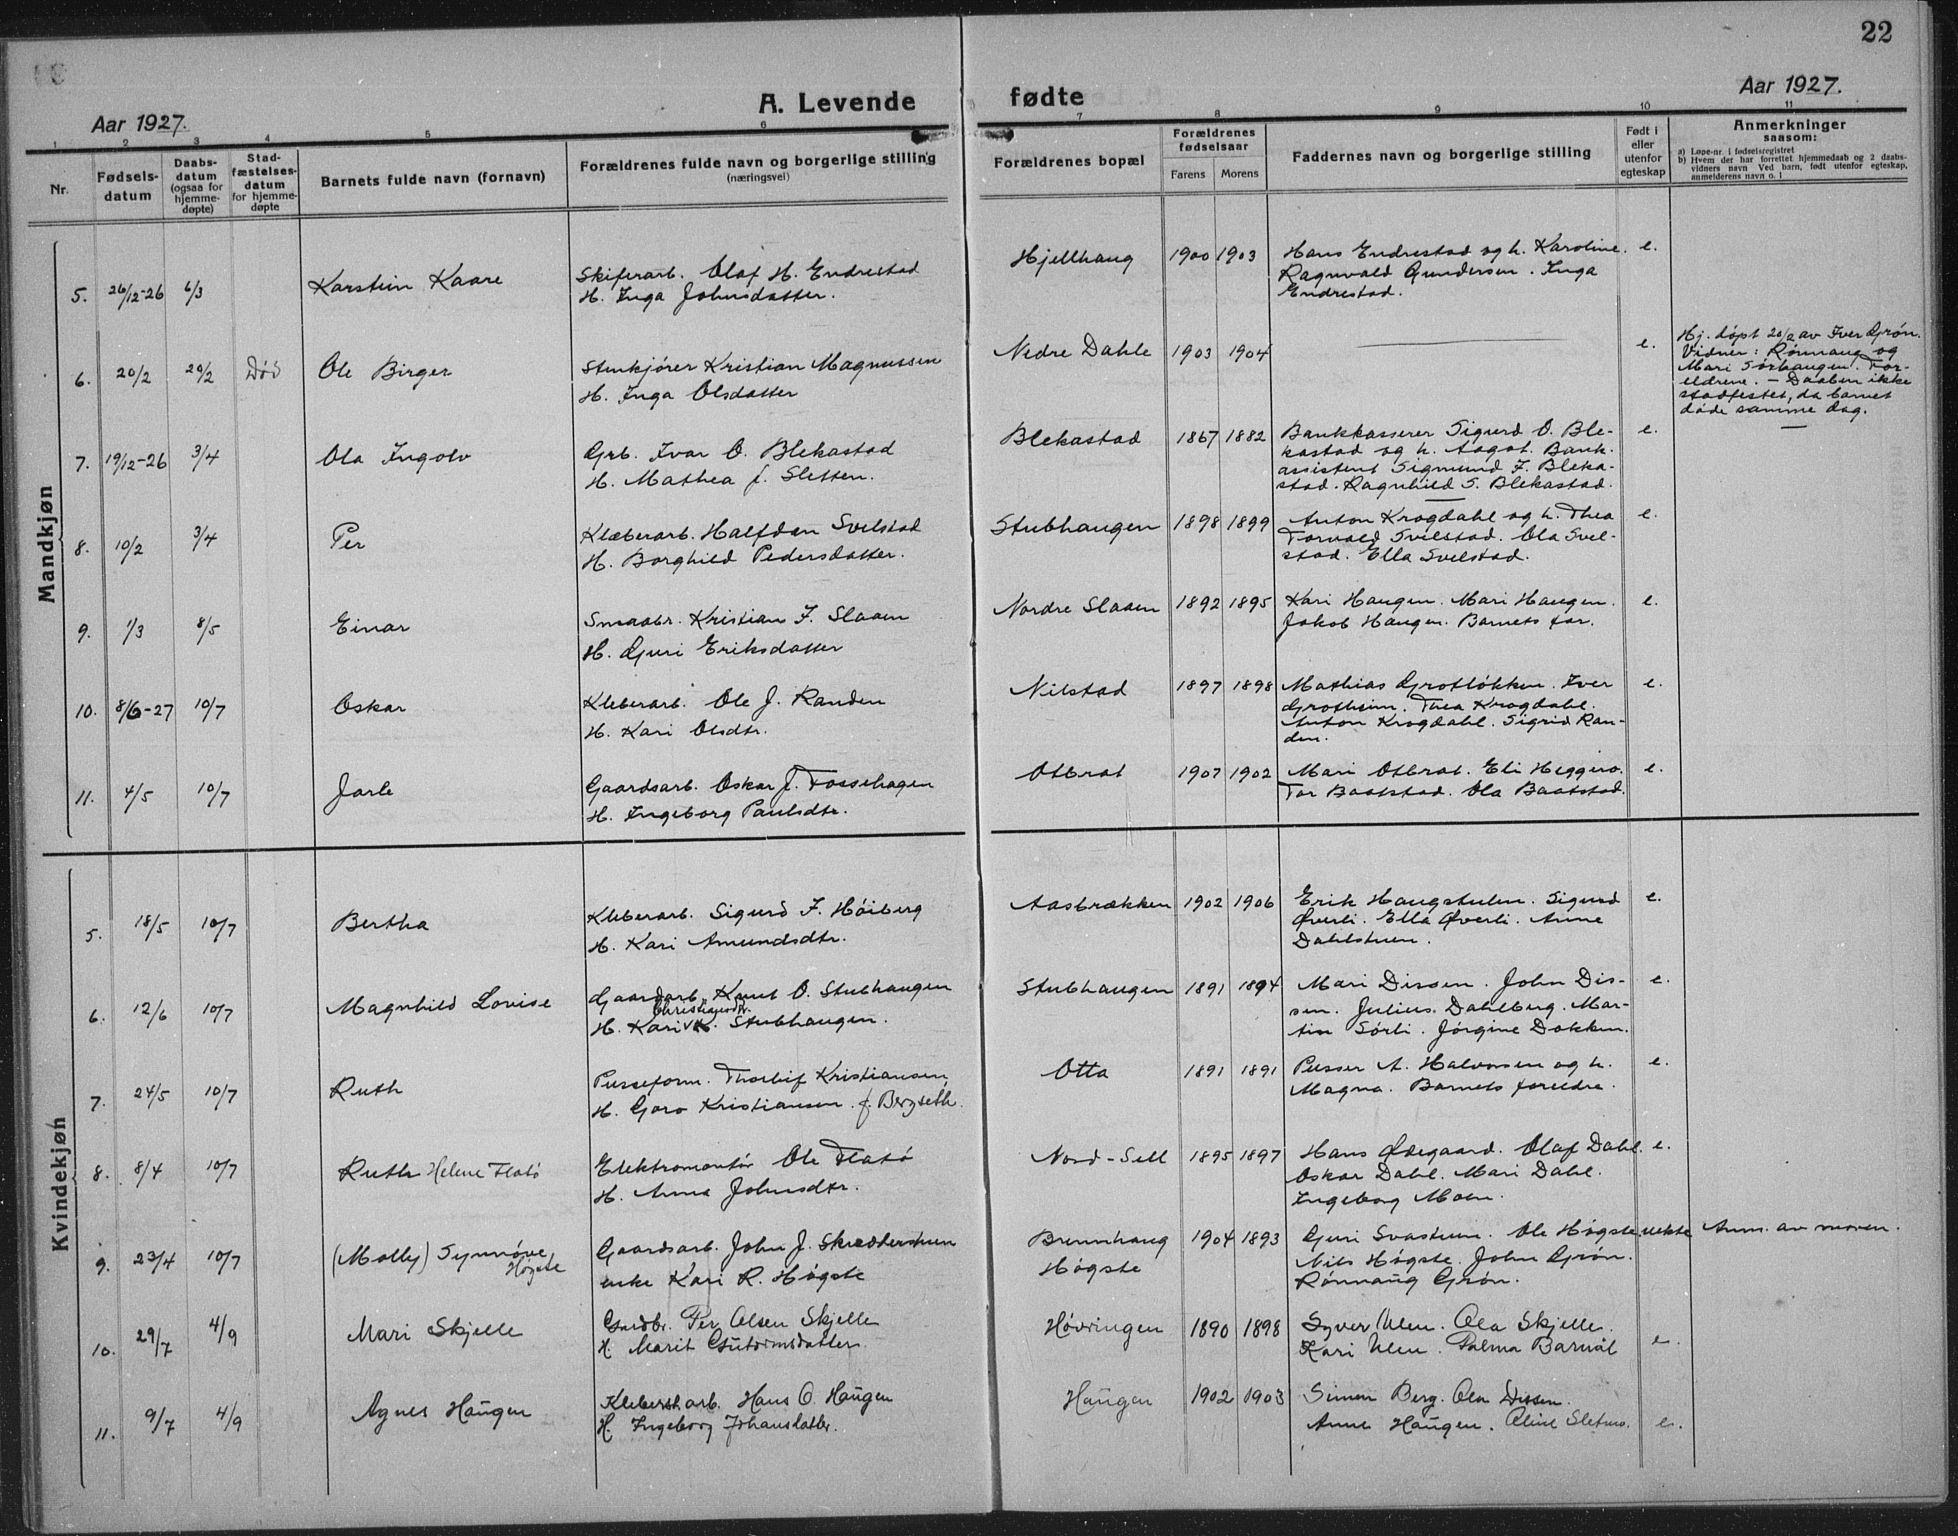 22
Aar 1927.
A. Levende
fødte
Aar 1927.
1 2 3 4 5 6 7 8 9 10 11
Nr.
Fødsels-
datum
Daabs-
datum
(ogsaa for
hjemme-
døpte)
Stad-
fæstelses-
datum
for hjemme-
døpte
Barnets fulde navn (fornavn)
Forældrenes fulde navn og borgerlige stilling
(næringsvei)
Forældrenes bopæl
Forældrenes
fødselsaar
Farens Morens
Faddernes navn og borgerlige stilling
Født i
eller
utenfor
egteskap
Anmerkninger
saasom:
a) Løpe-nr. i fødselsregistret
b) Hvem der har forrettet hjemmedaab og 2 daabs-
vidners navn Ved barn, født utenfor egteskap,
anmelderens navn o. l
Mandkjøn
5. 26/12-26 6/3 Karstein Kaare
Skiferarb. Olaf H. Endrestad
H. Inga Johnsdatter.
Hjellhaug 1900 1903
Hans Endrestad og h. Karoline. e.
Ragnvald Gundersen. Inga
Endrestad.
6. 20/2 20/2 Død Ole Birger
Stenkjører Kristian Magnussen
H. Inga Olsdatter
Nedre Dahle 1903 1904 e.
Hj. døpt 20/2 av Iver Grøn.
Vidner: Rønnaug og
Mari Sørhaugen. For-
eldrene. — Daaben ikke
stadfestet, da barnet
døde samme dag.
7. 19/12-26 3/4 Ola Ingolv
Grb. Ivar O. Blekastad
H. Mathea f. Sletten.
Blekastad 1867 1882
Bankkasserer Sigurd O. Ble- e.
kastad og h. Aagot. Bank-
assistent Sigmund I. Bleka-
stad. Ragnhild S. Blekastad.
8. 10/2 3/4 Per
Kleberarb. Halfdan Svelstad
H. Borghild Pedersdatter.
Stubhaugen 1898 1899
Anton Krogdahl og h. Thea e.
Torvald Svelstad. Ola Svel-
stad. Ella Svelstad.
9. 1/3 8/5 Einar
Smaabr. Kristian I. Slaaen
H. Guri Eriksdatter
Nordre Slaaen 1892 1895
Kari Haugen. Mari Haugen. e.
Jakob Haugen. Barnets far.
10. 8/6-27 10/7 Oskar
Kleberarb. Ole J. Randen
H. Kari Olsdtr.
Nilstad 1897 1898
Mathias Grotløkken. Iver e.
Grotheim. Thea Krogdahl.
Anton Krogdahl. Sigrid Ran-
den.
11. 4/5 10/7 Jarle
Gaardsarb. Oskar J. Fossehagen
H. Ingeborg Paulsdtr.
Otbrat 1907 1902
Mari Otbrat. Eli Heggero. e.
Tor Baatstad. Ola Baatstad.
Kvindekjøn
5. 18/5 10/7 Bertha
Kleberarb. Sigurd I. Høiberg
H. Kari Amundsdtr.
Aasbrækken 1902 1906
Erik Haugstulen. Sigurd e.
Øverli. Ella Øverli. Anne
Dahlstuen.
6. 12/6 10/7 Magnhild Lovise
Gaardarb. Knut O. Stubhaugen
Christiansdtr.
H. Kari K. Stubhaugen.
Stubhaugen 1891 1894
Mari Dissen. John Dis- e.
sen. Julius Dahlberg. Mar-
tin Sørli. Jørgine Dokken.
7. 24/5 10/7 Ruth
Pusseform. Thorleif Kristiansen
H. Goro Kristiansen. f. Bergseth.
Otta 1891 1891
Pusser A. Halvorsen og h. e.
Magna. Barnets foreldre.
8. 8/4 10/7 Ruth Helene Flatø
Elektromontør Ole Flatø
H. Anna Johnsdtr.
Nord-Sell 1895 1897
Hans Ødegaard. Olaf Dahl. e.
Oskar Dahl. Mari Dahl.
Ingeborg Moen.
9. 23/4 10/7 (Molly) Synnøve,
Høgste
Gaardsarb. John J. Skrædderstuen
enke Kari R. Høgste
Brennhaug 1904 1893
Høgste
Guri Svastuen. Ole Høgste uekte Anm. av moren.
Nils Høgste. John Grøn.
Rønnaug Grøn.
10. 29/7 4/9 Mari Skjelle
Gardbr. Per Olsen Skjelle
H Marit Gutormsdatter
Høvringen 1890 1898
Syver Ulen. Ola Skjelle.
Kari Ulen. Palma Barnål e.
11. 9/7 4/9 Agnes Haugen
Kleberstarb. Hans O. Haugen
H. Ingeborg Johansdatter.
Haugen 1902 1903
Simen Berg. Ola Dissen.
Anne Haugen. Oline Sletmo. e.